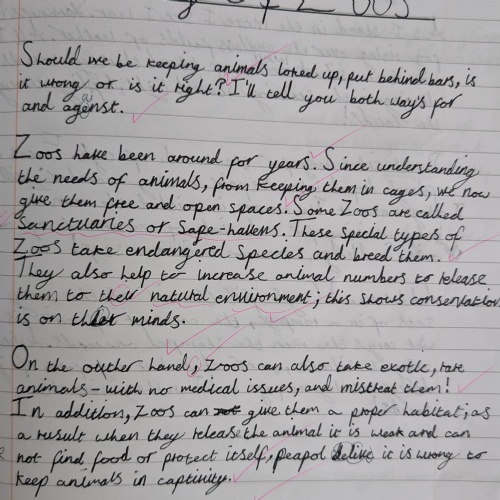 of Zoos
Should we be keeping animals loked up, put behind bars, is
it wrong or is it right? I'll tell you both ways for
and agenst.
Zoos have been around for years. Since understanding
the needs of animals, from keeping them in cages, we now
give them free and open spaces. Some Zoos are called
Sanctuaries or Safe-havens. These special types of
Zoos take endangered species and breed them.
They also help to increase animal numbers to release
them to their natural environment; this shows conservation
is on their minds.
On the outher hand, Zoos can also take exotic, rare
animals - with no medical issues, and mistreat them!
In addition, Zoos can not give them a proper habitat; as
a result when they release the animal it is weak and can
not find food or protect itself; peapol it is wrong to
keep animals in captivity.